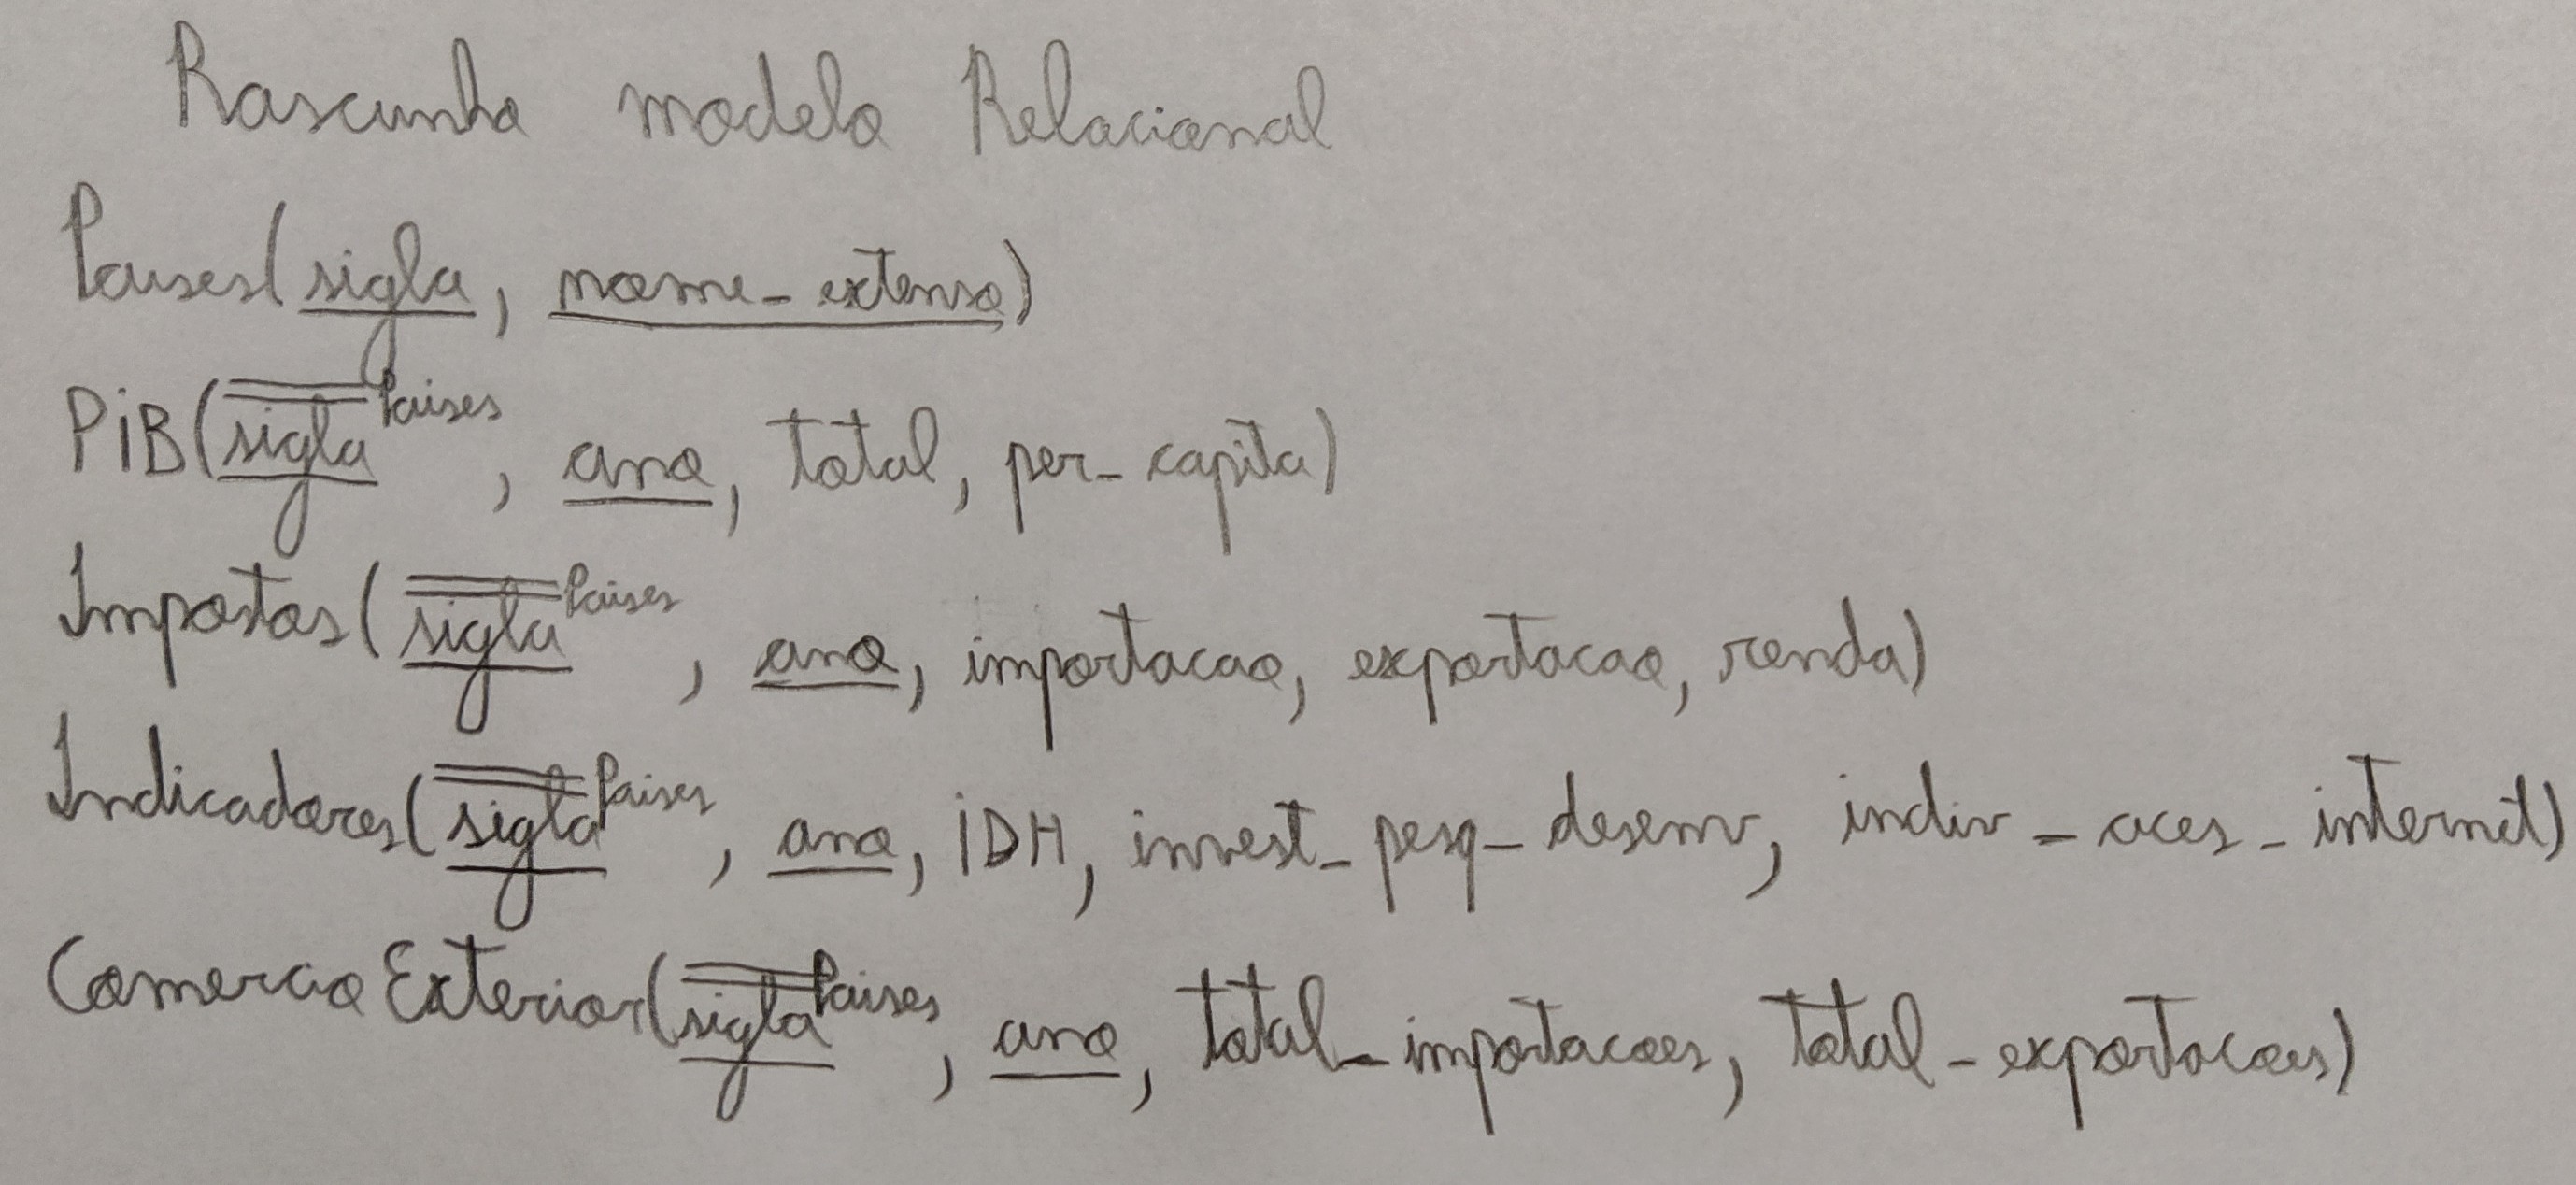 Rascunho modelo Relacional
Paises(sigla, nome_extenso)
PiB(sigla Paises, ano, total, per_capita)
Impostos(sigla Paises, ano, importacao, exportacao, renda)
Indicadores(sigla Paises, ano, iDH, invest_pesq_desenv, indiv_aces_internet)
ComercioExterior(sigla Paises, ano, total_importacoes, total_exportacoes)